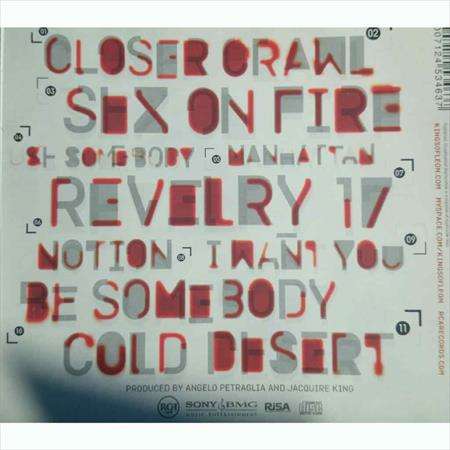 01 CLOSER CRAWL 02
03 SEX ON FIRE
04 USE SOMEBODY 05 MANHATTAN
06 REVELRY 17 07
NOTION 08 I WANT YOU 09
BE SOMEBODY
10 COLD DESERT 11
PRODUCED BY ANGELO PETRAGLIA AND JACQUIRE KING
RCA SONY BMG
MUSIC ENTERTAINMENT
KINGSOFLEON.COM MYSPACE.COM/KINGSOFLEON RCARECORDS.COM